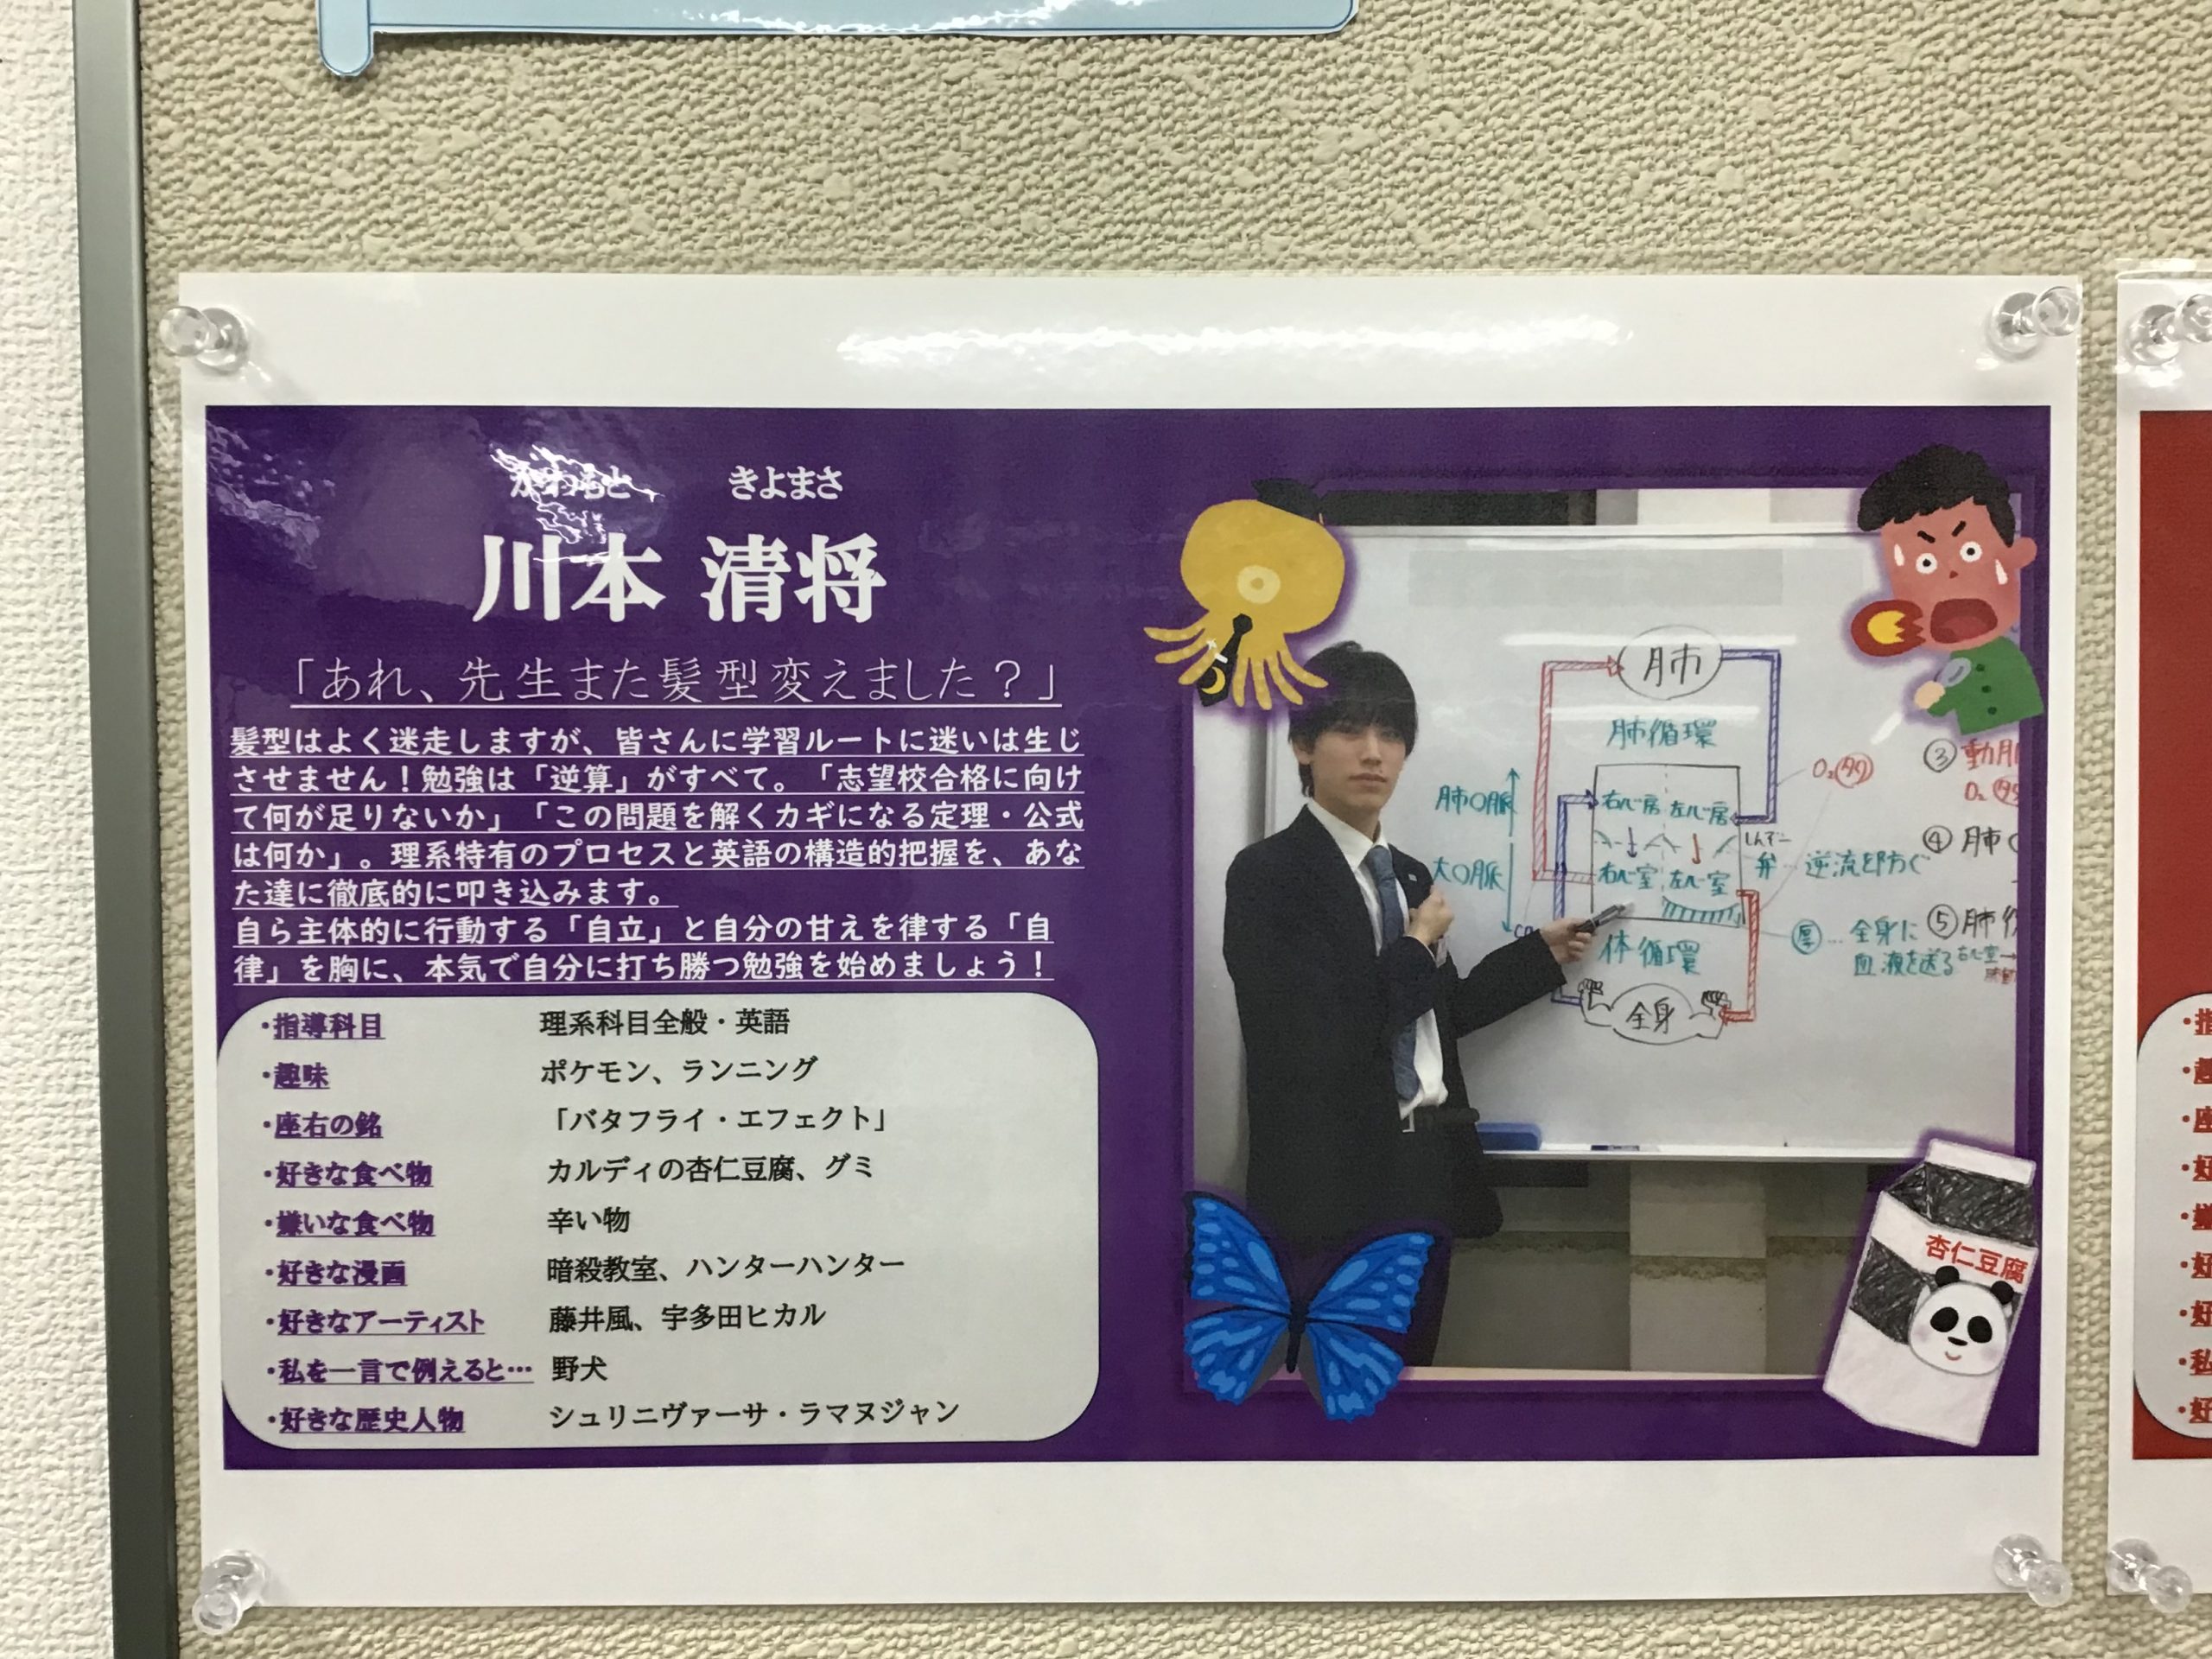 かわもと きよまさ
川本 清将
「あれ、先生また髪型変えました？」
髪型はよく迷走しますが、皆さんに学習ルートに迷いは生じ
させません！勉強は「逆算」がすべて。「志望校合格に向け
て何が足りないか」「この問題を解くカギになる定理・公式
は何か」。理系特有のプロセスと英語の構造的把握を、あな
た達に徹底的に叩き込みます。
自ら主体的に行動する「自立」と自分の甘えを律する「自
律」を胸に、本気で自分に打ち勝つ勉強を始めましょう！
・指導科目 理系科目全般・英語
・趣味 ポケモン、ランニング
・座右の銘 「バタフライ・エフェクト」
・好きな食べ物 カルディの杏仁豆腐、グミ
・嫌いな食べ物 辛い物
・好きな漫画 暗殺教室、ハンターハンター
・好きなアーティスト 藤井風、宇多田ヒカル
・私を一言で例えると… 野犬
・好きな歴史人物 シュリニヴァーサ・ラマヌジャン
肺
肺循環
肺〇脈
大〇脈
右心房 左心房
右心室 左心室
体循環
全身
O₂
弁…逆流を防ぐ
厚…全身に
血液を送る
③
O₂
④肺
⑤肺
右心室→
杏仁豆腐